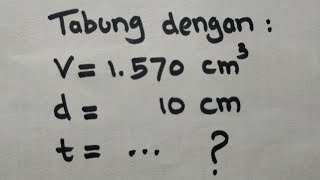 Tabung dengan :
V = 1.570 cm³
d = 10 cm
t = ... ?